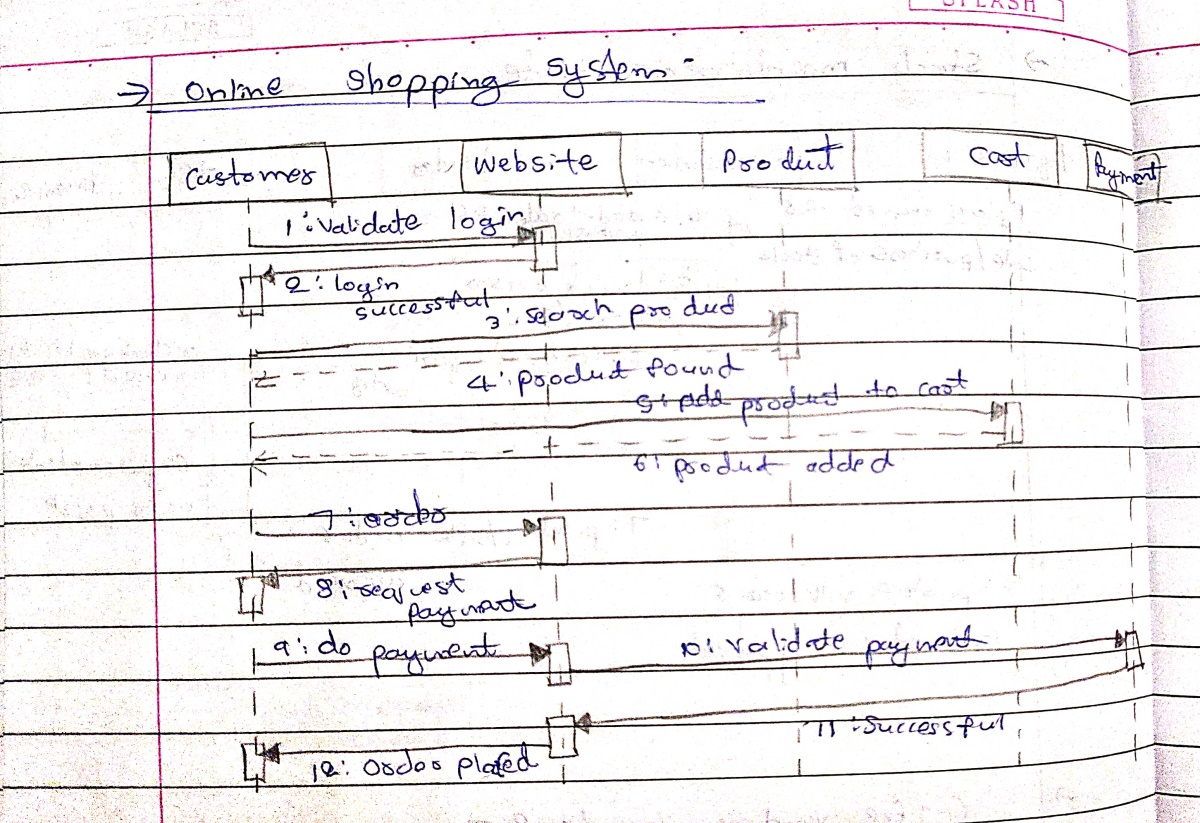 SPLASH
→ Online Shopping System
Customer Website Product Cart Payment
1: validate login
2: login
successful
3: search product
4: product found
5: Add product to cart
6: product added
7: order
8: request
payment
9: do payment
10: validate payment
11: Successful
12: Order placed